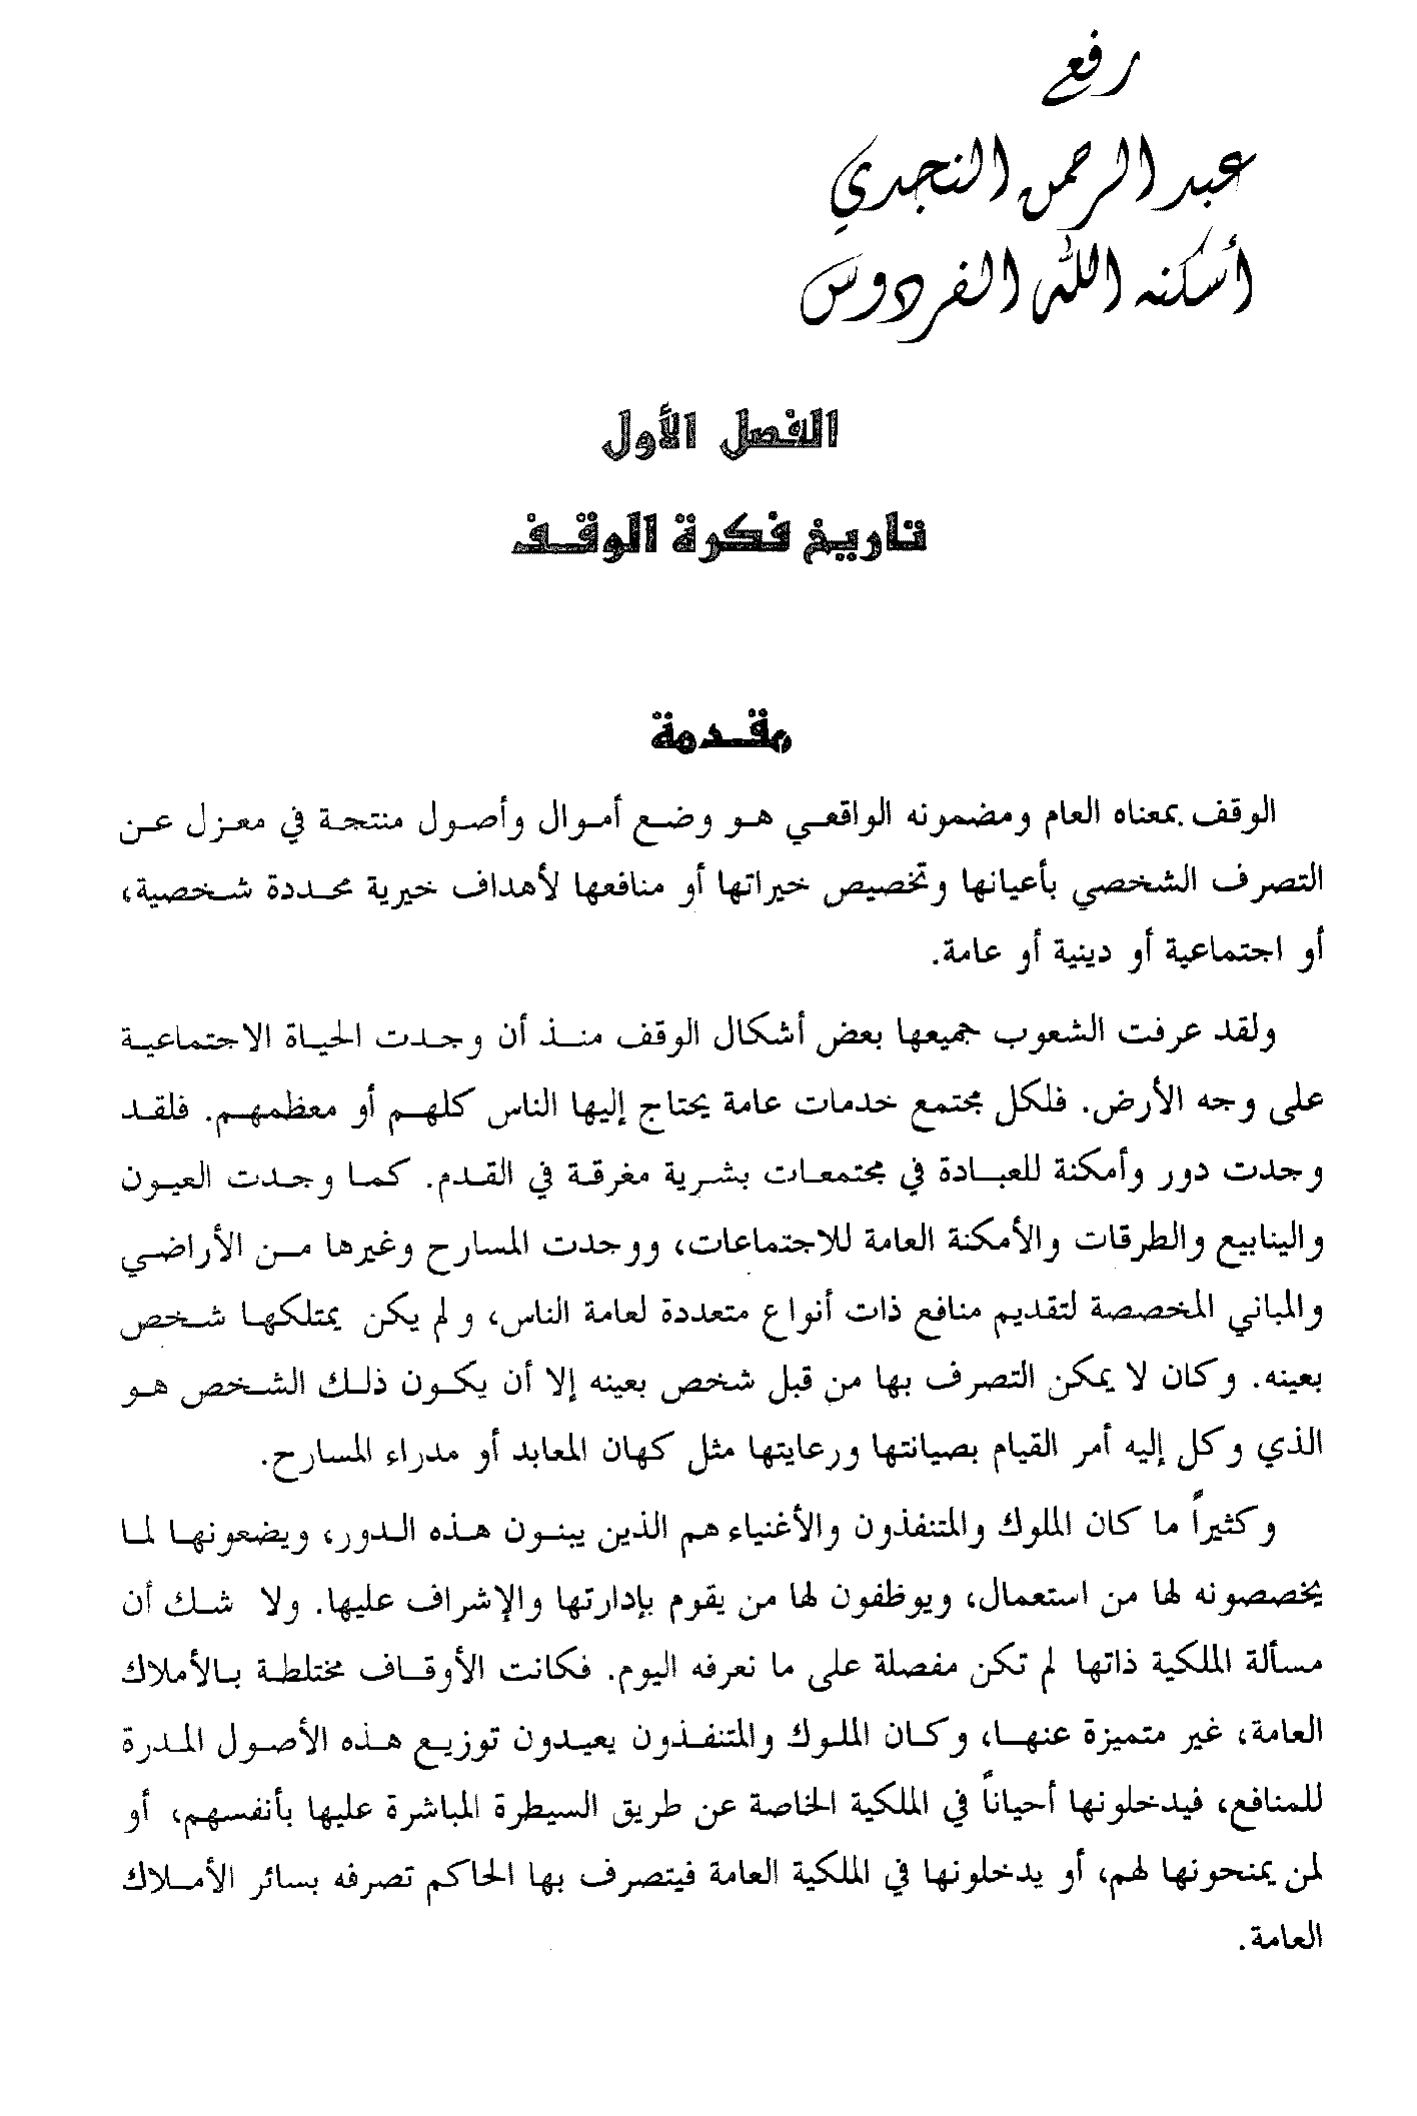 رفع
عبد الرحمن النجدي
أسكنه الله الفردوس
الفصل الأول
تاريخ فكرة الوقف
مقدمة
الوقف بمعناه العام ومضمونه الواقعي هو وضع أموال وأصول منتجة في معزل عن
التصرف الشخصي بأعيانها وتخصيص خيراتها أو منافعها لأهداف خيرية محددة شخصية،
أو اجتماعية أو دينية أو عامة.
ولقد عرفت الشعوب جميعها بعض أشكال الوقف منذ أن وجدت الحياة الاجتماعية
على وجه الأرض. فلكل مجتمع خدمات عامة يحتاج إليها الناس كلهم أو معظمهم. فلقد
وجدت دور وأمكنة للعبادة في مجتمعات بشرية مغرقة في القدم. كما وجدت العيون
والينابيع والطرقات والأمكنة العامة للاجتماعات، ووجدت المسارح وغيرها من الأراضي
والمباني المخصصة لتقديم منافع ذات أنواع متعددة لعامة الناس، ولم يكن يمتلكها شخص
بعينه. وكان لا يمكن التصرف بها من قبل شخص بعينه إلا أن يكون ذلك الشخص هو
الذي وكل إليه أمر القيام بصيانتها ورعايتها مثل كهان المعابد أو مدراء المسارح.
وكثيراً ما كان الملوك والمتنفذون والأغنياء هم الذين يبنون هذه الدور، ويضعونها لما
يخصصونه لها من استعمال، ويوظفون لها من يقوم بإدارتها والإشراف عليها. ولا شك أن
مسألة الملكية ذاتها لم تكن مفصلة على ما نعرفه اليوم. فكانت الأوقاف مختلطة بالأملاك
العامة، غير متميزة عنها، وكان الملوك والمتنفذون يعيدون توزيع هذه الأصول المدرة
للمنافع، فيدخلونها أحياناً في الملكية الخاصة عن طريق السيطرة المباشرة عليها بأنفسهم، أو
لمن يمنحونها لهم، أو يدخلونها في الملكية العامة فيتصرف بها الحاكم تصرفه بسائر الأملاك
العامة.